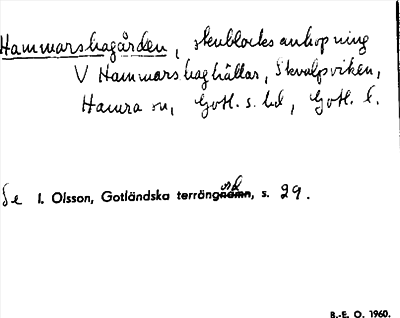 Hammarshagården, stenblocksanhopning
V Hammarshaghällar, Skvalpviken,
Hamra sn, Gotl. s. hd, Gotl. l.
Se I. Olsson, Gotländska terrängord, s. 29.
B.-E. O. 1960.